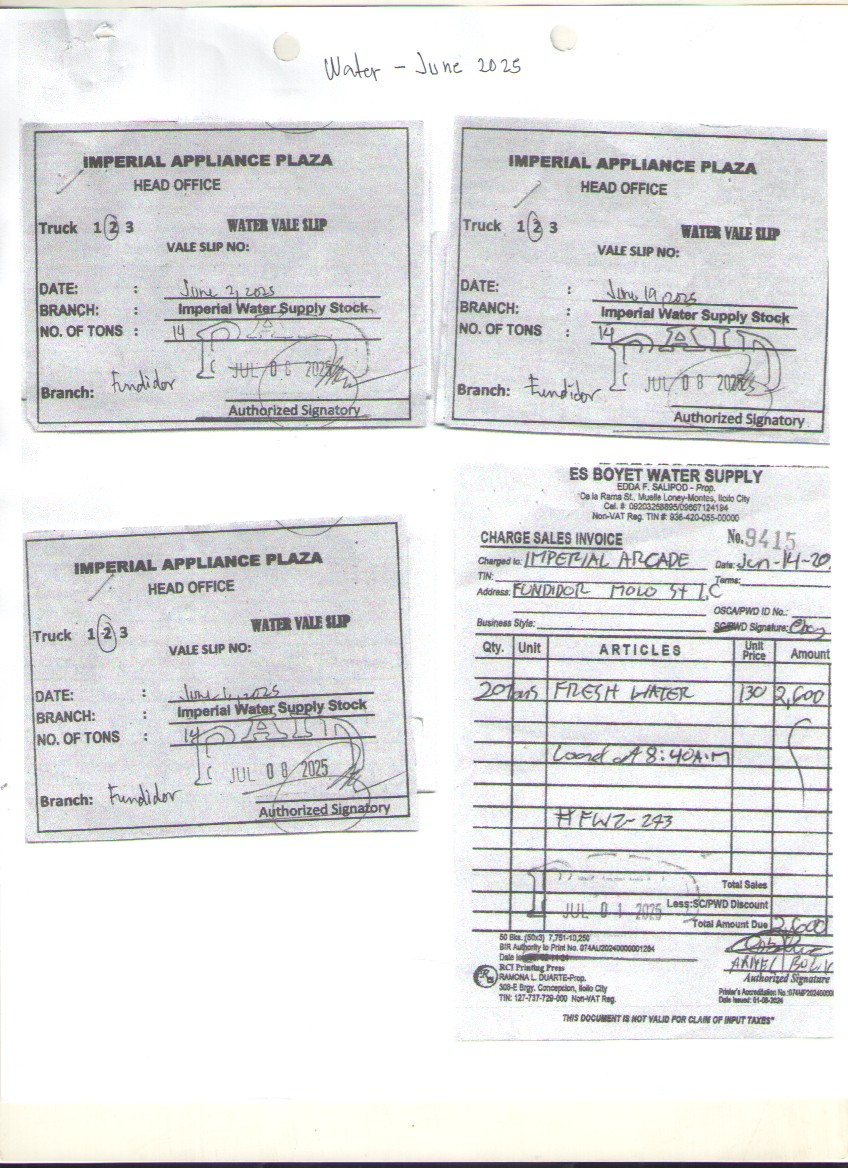 Water - June 2025
IMPERIAL APPLIANCE PLAZA
HEAD OFFICE
Truck 1 2 3
WATER VALE SLIP
VALE SLIP NO:
DATE: : June 2, 2025
BRANCH: : Imperial Water Supply Stock
NO. OF TONS : 14
JUL 08 2025
Branch: Fundidor
Authorized Signatory
IMPERIAL APPLIANCE PLAZA
HEAD OFFICE
Truck 1 2 3
WATER VALE SLIP
VALE SLIP NO:
DATE: : June 19, 2025
BRANCH: : Imperial Water Supply Stock
NO. OF TONS : 14
JUL 08 2025
Branch: Fundidor
Authorized Signatory
IMPERIAL APPLIANCE PLAZA
HEAD OFFICE
Truck 1 2 3
WATER VALE SLIP
VALE SLIP NO:
DATE: : June 2025
BRANCH: : Imperial Water Supply Stock
NO. OF TONS : 14
JUL 08 2025
Branch: Fundidor
Authorized Signatory
ES BOYET WATER SUPPLY
EDDA F. SALIPOD - Prop.
De la Rama St., Muelle Loney-Montes, Iloilo City
Cel. #: 09203258895/09667124194
Non-VAT Reg. TIN #: 936-420-055-00000
CHARGE SALES INVOICE No. 9415
Charged to: IMPERIAL ARCADE Date: Jun-14-20
TIN: Terms:
Address: FUNDIDOR MOLO ST I.C
OSCA/PWD ID No.:
Business Style: SC/PWD Signature:
Qty. Unit ARTICLES Unit Price Amount
20 Tons FRESH WATER 130 2,600
Load at 8:40A.M
# FWZ-243
Total Sales
JUL 01 2025 Less:SC/PWD Discount
Total Amount Due 2,600
50 Bks. (50x3) 7,751-10,250
BIR Authority to Print No. 074AU20240000001284
RCI Printing Press
RAMONA L. DUARTE-Prop.
309-E Brgy. Concepcion, Iloilo City
TIN: 127-737-729-000 Non-VAT Reg.
Authorized Signature
Date Issued: 01-08-2024
THIS DOCUMENT IS NOT VALID FOR CLAIM OF INPUT TAXES"